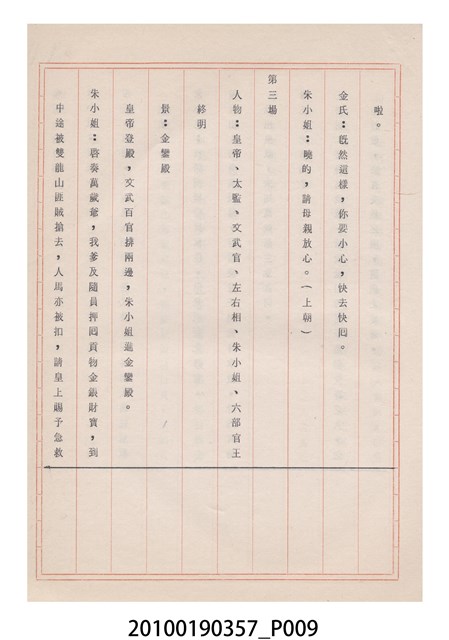 啦。
金氏：既然這樣，你要小心，快去快囘。
朱小姐：曉的，請母親放心。（上朝）
第三場
人物：皇帝、太監、文武官、左右相、朱小姐、六部官王
終明
景：金鑾殿
皇帝登殿，文武百官排兩邊，朱小姐進金鑾殿。
朱小姐：啓奏萬歲爺，我爹及隨員押囘貢物金銀財寶，到
中途被雙龍山匪賊搶去，人馬亦被扣，請皇上賜予急救
20100190357_P009